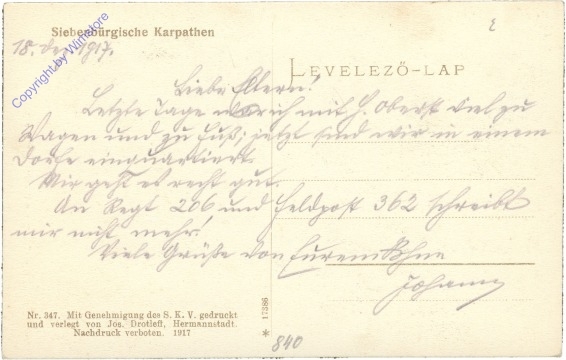 Siebenbürgische Karpathen
18. Dez. 1917.
Copyright by Winstore
LEVELEZŐ-LAP
Liebe Eltern!
Letzte Tage war ich mit H. Oberst viel zu
Wagen und zu Fuß; jetzt sind wir in einem
Dorfe einquartiert.
Mir geht es recht gut.
An Regt 206 und Feldpost 362 schreibt
mir nicht mehr!
Viele Grüße von Eurem Sohne
Johann
Nr. 347. Mit Genehmigung des S. K. V. gedruckt
und verlegt von Jos. Drotleff, Hermannstadt.
Nachdruck verboten. 1917
17386
*
840